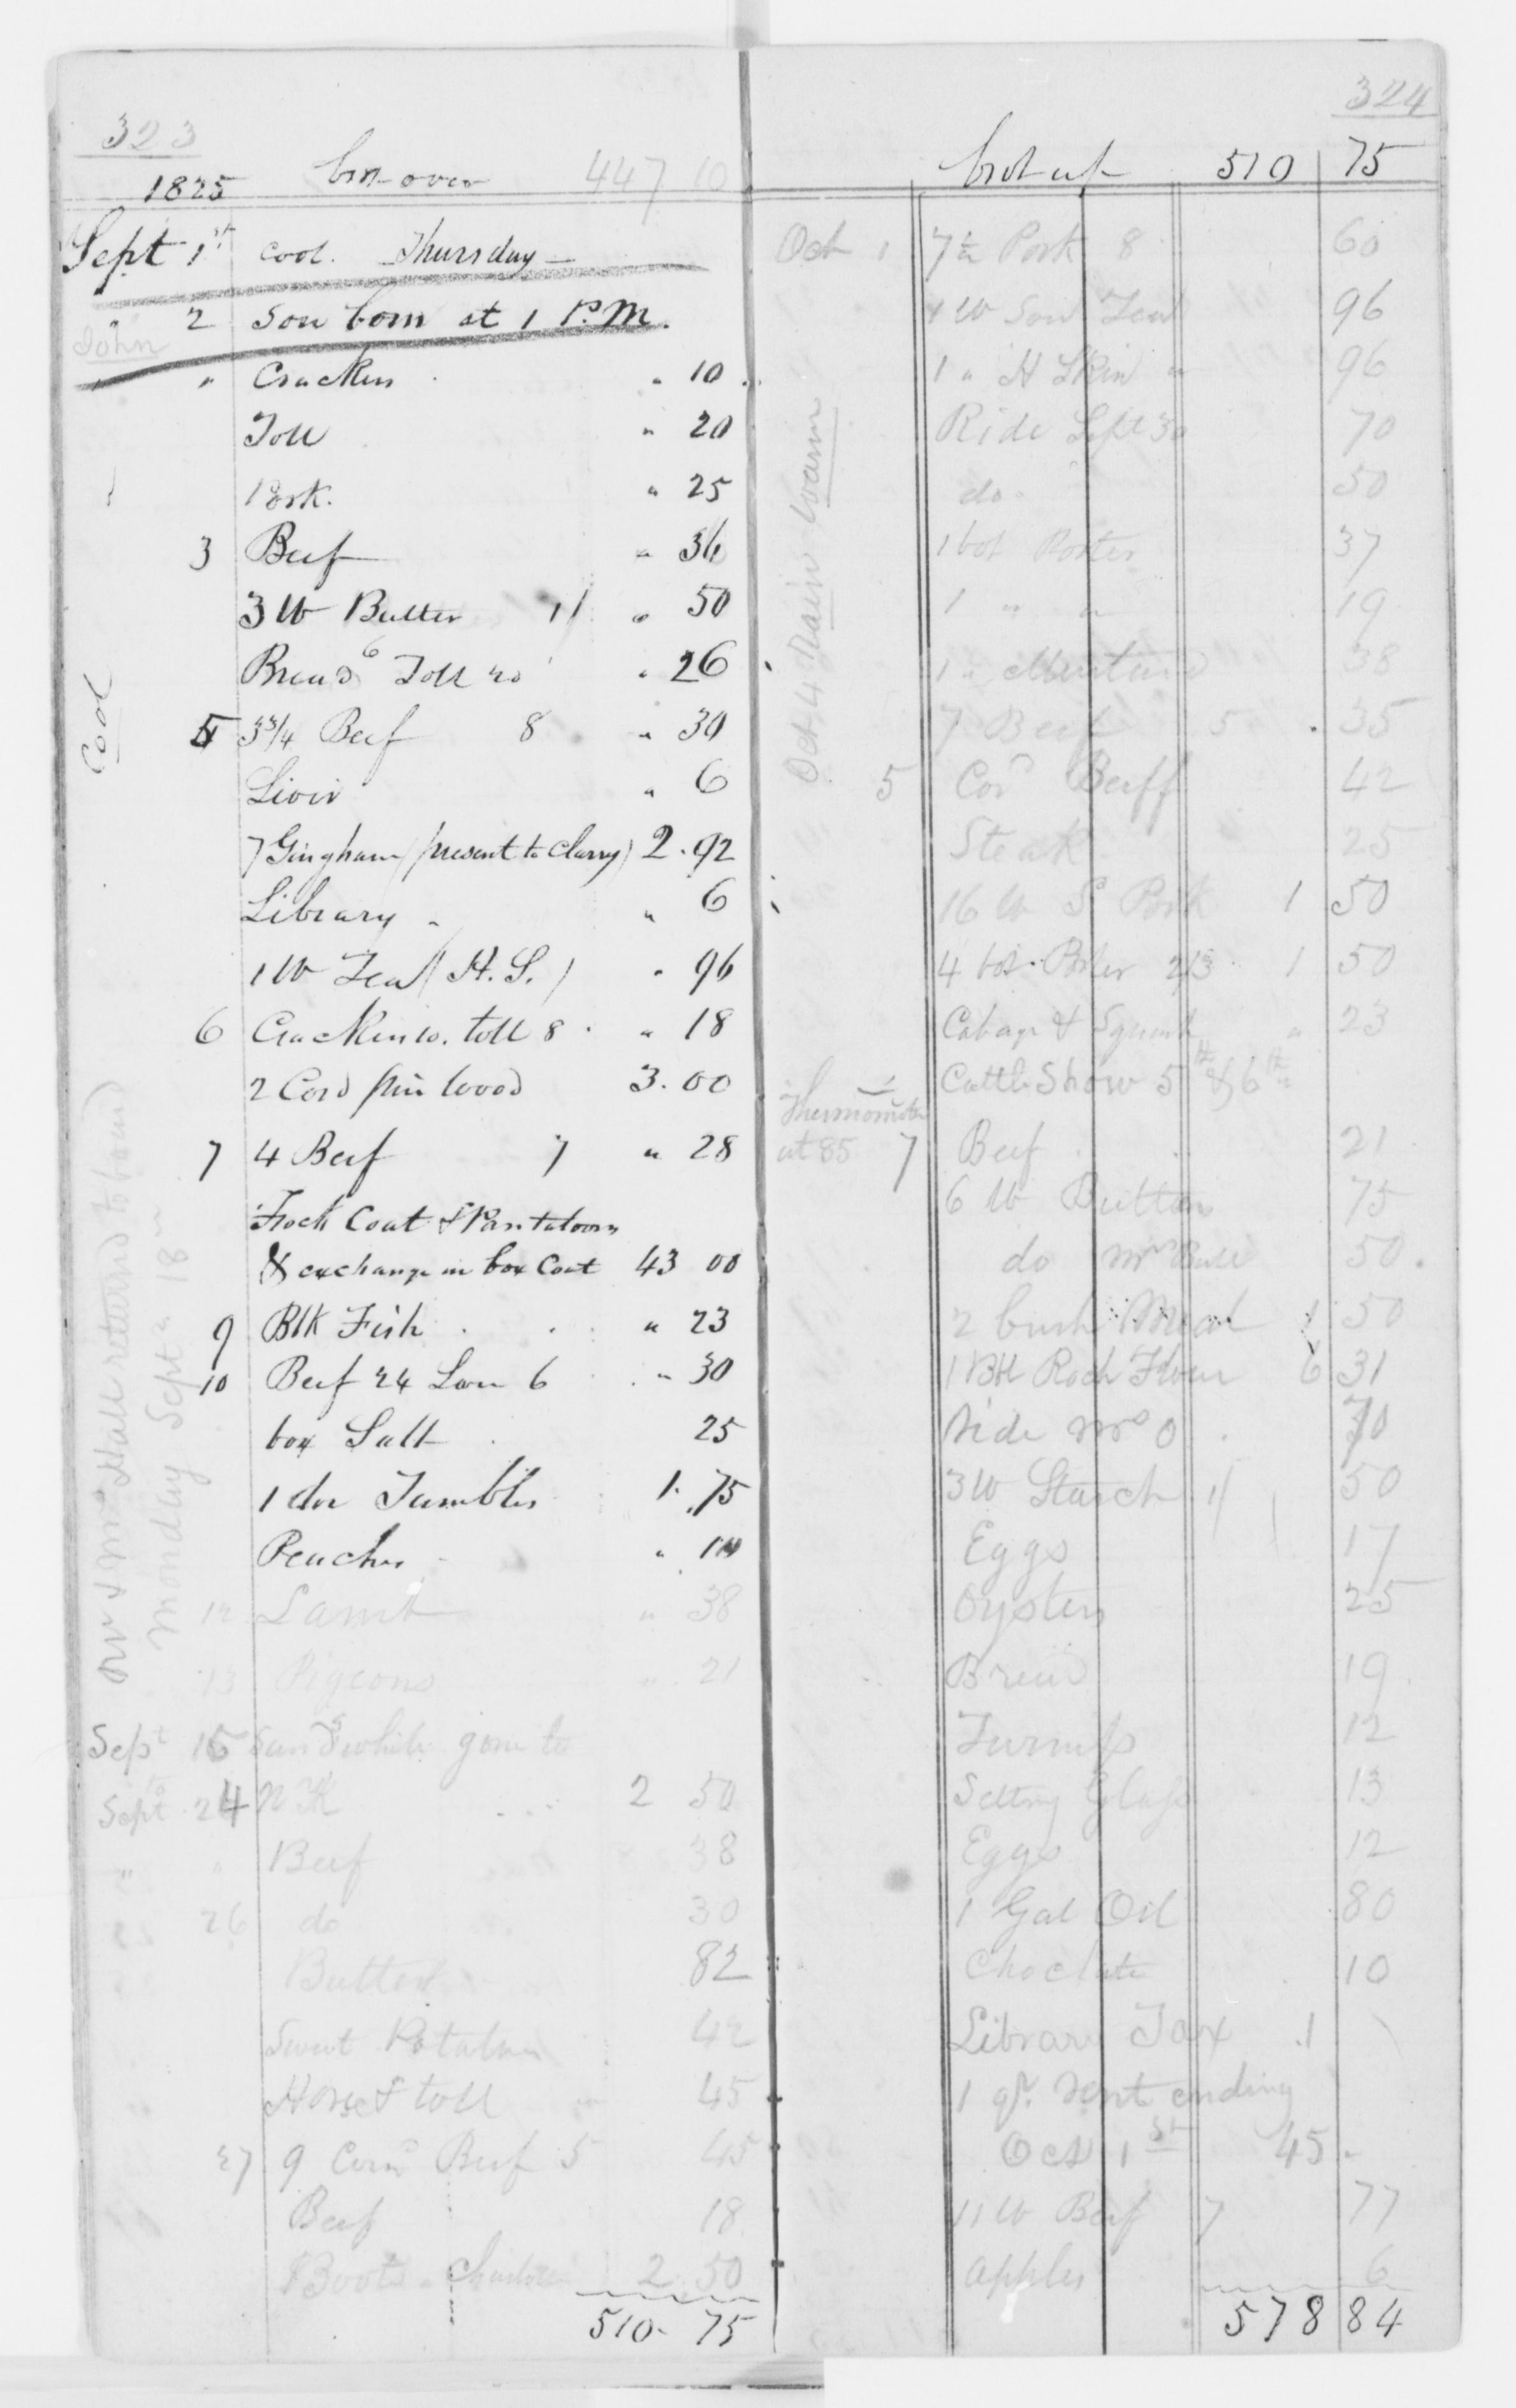 323
1825 bro over 447 10
Sept 1st Cool. Thursday
John 2 Son born at 1 P.M.
" " Crackers " 10
Toll " 20
Pork. " 25
3 Beef " 36
3 lb Butter 1/ " 50
Bread 6 Toll 20 " 26
Cool
5 3 3/4 Beef 8 " 30
Livir " 6
7 Gingham (present to Clarry) 2.92
Library " 6
1 lb Tea (H. S.) " 96
6 Crackers 10. toll 8 " 18
2 Cord pin wood 3.00
7 4 Beef 7 " 28
Frock Coat & Pantaloons
& exchange in box Coat 43 00
9 Blk Fish " 23
10 Beef 24 Lam 6 " 30
box Salt 25
1 doz Tumbles 1.75
Peaches " 10
Mr & Mrs Hall returnd to board
Monday Sept 18
12 Lamb " 38
13 Pigeons " 21
Sept 15 while gone to
Sept 24 N Y 2 50
" " Beef 38
" 26 do 30
Butter 82
Sweet Potatoes 42
Horse & toll 45
27 9 Corn'd Beef 5 45
Beef 18
Boots Charlotte 2 50
510. 75
324
brot up 510 75
Oct 1 7½ Pork 8 60
1 lb Sou Tea 96
1 " H Skin " 96
Ride Sept 30 70
do 50
Oct 4 Rain warm
1 bot Porter 37
1 " " 19
1 " Mustard 38
7 Beef 5 35
5 Cor'd Beeff 42
Steak 25
16 lb S Pork 1 50
4 bot Porter 2/3 1 50
Cabage & Squash " 23
Cattle Show 5th & 6th
Thermometer
at 85
7 Beef 21
6 lb Butter 75
do Mrs 50
2 bush Meal 1 50
1 Bbl Roch Flour 6 31
Ride Mrs O 70
3 lb Starch 1/ 50
Eggs 17
Oysters 25
Bread 19
Turnips 12
Setting Glass 13
Eggs 12
1 Gal Oil 80
Choclate 10
Library Tax 1
1 qr. rent ending
Oct 1st 45 -
11 lb Beef 7 77
apples 6
578 84